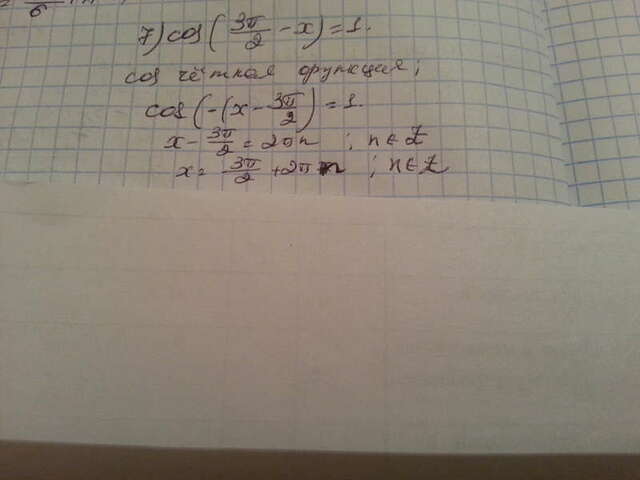 7) cos(3π/2 - x) = 1.
cos чётная функция;
cos(-(x - 3π/2) = 1.
x - 3π/2 = 2πn ; n ∈ Z
x = 3π/2 + 2πn ; n ∈ Z